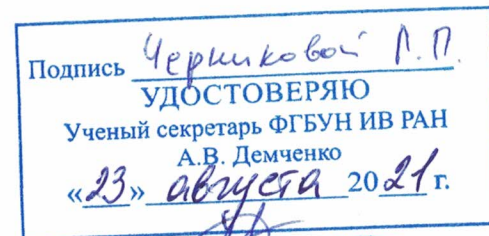 Подпись Черниковой Л.П.
УДОСТОВЕРЯЮ
Ученый секретарь ФГБУН ИВ РАН
А.В. Демченко
«23» августа 2021 г.